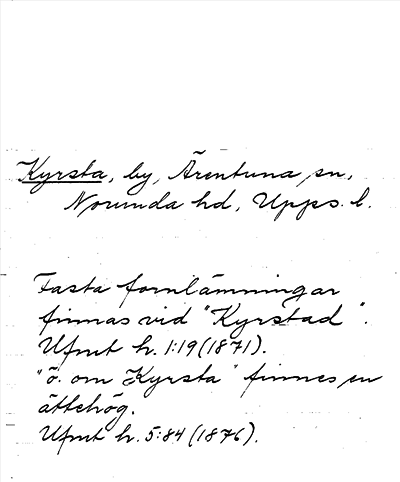 Kyrsta, by, Ärentuna sn,
Norunda hd, Upps. l.
Fasta fornlämningar
finnas vid "Kyrstad".
Ufmt h. 1:19 (1871).
"ö. om Kyrsta" finnes en
ättehög.
Ufmt h. 5:84 (1876).